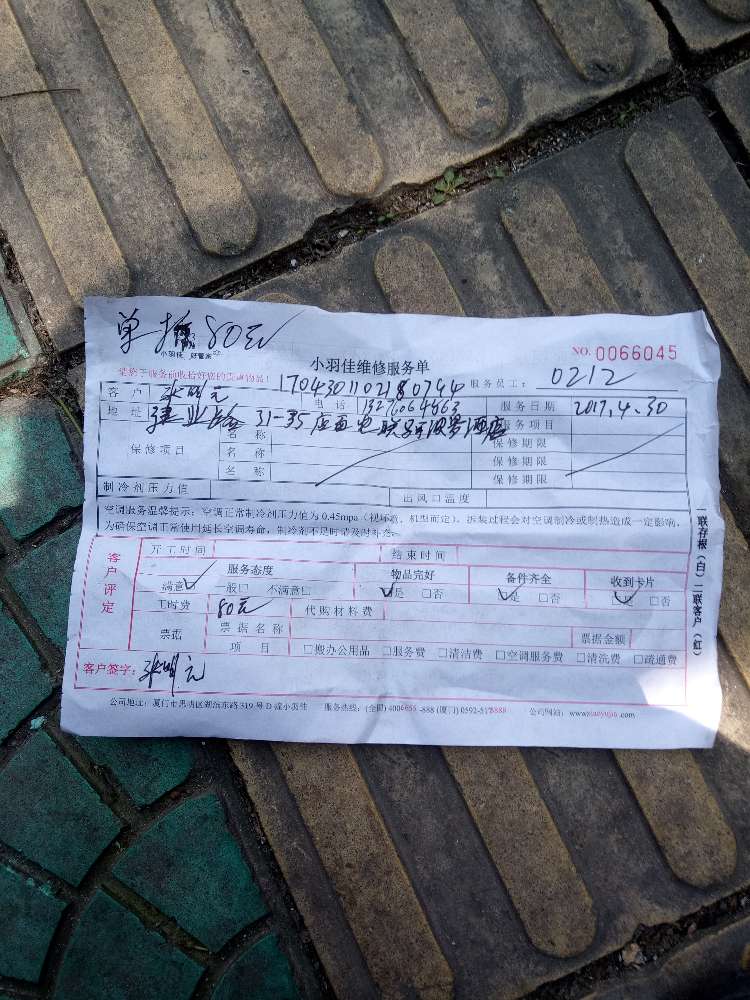 单 80元
小羽佳 好管家
小羽佳维修服务单
NO. 0066045
服务员工: 0212
客户 张明元 电话 服务日期 2017.4.30
地址 建业路 31-35店面 酒店 服务项目
保修项目 名称 保修期限
名称 保修期限
名称 保修期限
制冷剂压力值 出风口温度
空调服务温馨提示：空调正常制冷剂压力值为0.45mpa（视环境、机型而定），拆装过程会对空调制冷或制热造成一定影响，
为确保空调正常使用延长空调寿命，制冷剂不足时请及时补充。
客户评定
开工时间 结束时间
服务态度 物品完好 备件齐全 收到卡片
满意 一般□ 不满意□ 是 □否 是 □否 是 □否
工时费 80元 代购材料费
票据 票据名称 票据金额
项目 □搬办公用品 □服务费 □清洁费 □空调服务费 □清洗费 □疏通费
客户签字: 张明元
公司地址：厦门市思明区湖滨东路319号D 小羽佳 服务热线：(全国) 4006655-888 (厦门) 0592-5178888 公司网站：www.xiaoyujia.com
一联存根（白）二联客户（红）